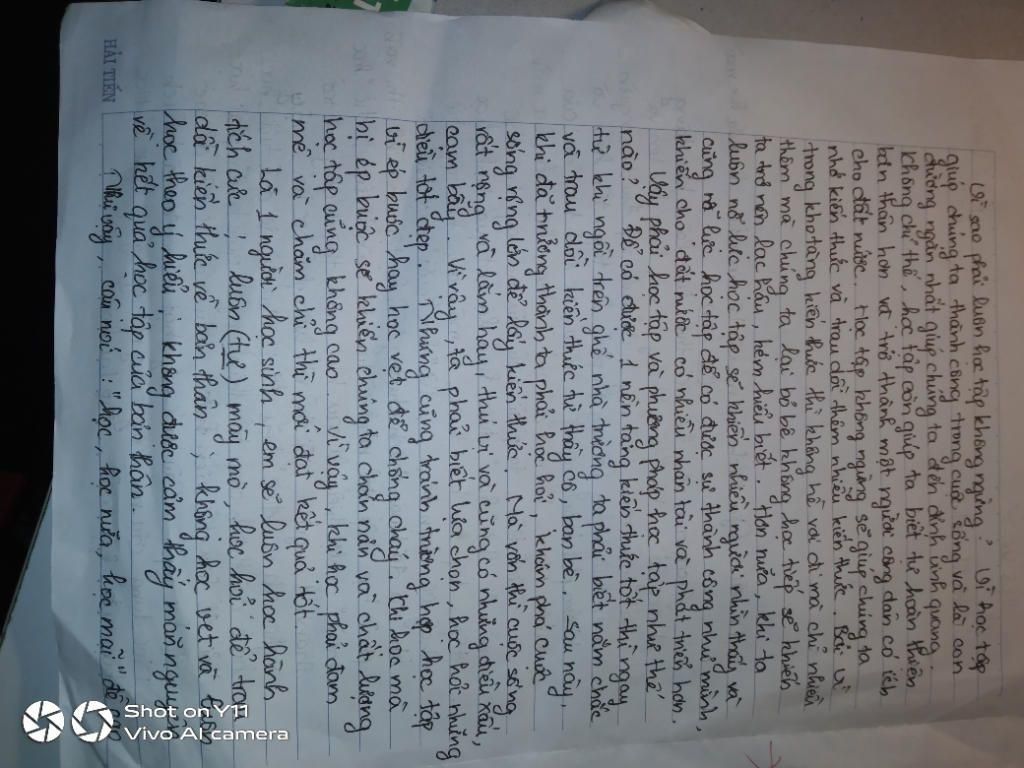 Vì sao phải luôn học tập không ngừng? Vì học tập
giúp chúng ta thành công trong cuộc sống và là con
đường ngắn nhất giúp chúng ta đến đỉnh vinh quang.
Không chỉ thế, học tập còn giúp ta biết tự hoàn thiện
bản thân hơn và trở thành một người công dân có ích
cho đất nước. Học tập không ngừng sẽ giúp chúng ta
nhớ kiến thức và trau dồi thêm nhiều kiến thức. Bởi vì
trong kho tàng kiến thức thì không hề vơi đi mà chỉ nhiều
thêm mà chúng ta lại bỏ bê không học tiếp sẽ khiến
ta trở nên lạc hậu, kém hiểu biết. Hơn nữa, khi ta
luôn nỗ lực học tập sẽ khiến nhiều người nhìn thấy và
cũng nỗ lực học tập để có được sự thành công như mình,
khiến cho đất nước có nhiều nhân tài và phát triển hơn.
Vậy phải học tập và phương pháp học tập như thế
nào? Để có được 1 nền tảng kiến thức tốt thì ngay
từ khi ngồi trên ghế nhà trường ta phải biết nắm chắc
và trau dồi kiến thức từ thầy cô, bạn bè, sau này,
khi đã trưởng thành ta phải học hỏi, khám phá cuộc
sống rộng lớn để lấy kiến thức. Mà vốn thì cuộc sống
rất rộng và lắm hay, thú vị và cũng có những điều xấu,
cạm bẫy. Vì vậy, ta phải biết lựa chọn, học hỏi những
điều tốt đẹp. Nhưng cũng tránh trường hợp học tập
vì ép buộc hay học vẹt để chống cháy. Khi học mà
bị ép buộc sẽ khiến chúng ta chán nản và chất lượng
học tập cũng không cao. Vì vậy, khi học phải đam
mê và chăm chỉ thì mới đạt kết quả tốt.
Là 1 người học sinh, em sẽ luôn học hành
tích cực, luôn (tự) mày mò, học hỏi để trau
dồi kiến thức về bản thân, không học vẹt và
học theo ý hiểu, không được cảm thấy mãn nguyện
về kết quả học tập của bản thân.
Như vậy, câu nói: "học, học nữa, học mãi"
HẢI TIẾN
Shot on Y11
Vivo AI camera